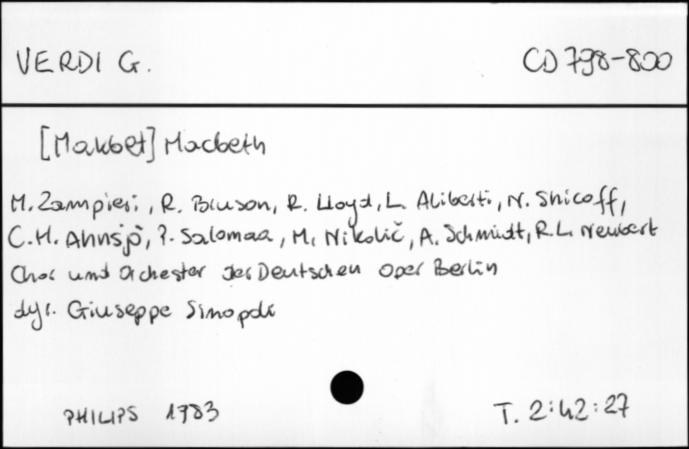 VERDI G. CD 798-800
[Makbet] Macbeth
M. Zampieri, R. Bruson, R. Lloyd, L. Aliberti, N. Shicoff,
C.H. Ahnsjö, P. Salomaa, M. Nikolič, A. Schmidt, R.L. Neubert
Chor und Orchester der Deutschen Oper Berlin
dyr. Giuseppe Sinopoli
PHILIPS 1983 T. 2:42:27